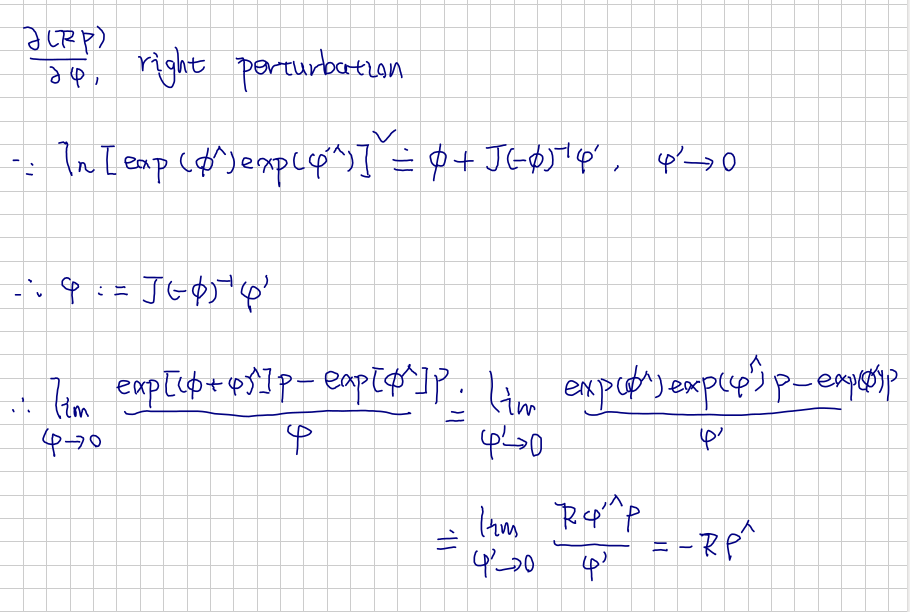 ∂(Rp)/∂φ, right perturbation
∵ ln[exp(ϕ^)exp(φ'^)]^∨ ≐ ϕ + J(-ϕ)⁻¹φ', φ' → 0
∴ φ := J(-ϕ)⁻¹φ'
∴ lim_{φ→0} (exp[(ϕ+φ)^]p - exp[ϕ^]p)/φ ≐ lim_{φ'→0} (exp(ϕ^)exp(φ'^)p - exp(ϕ^)p)/φ'
≐ lim_{φ'→0} (Rφ'^p)/φ' = -Rp^